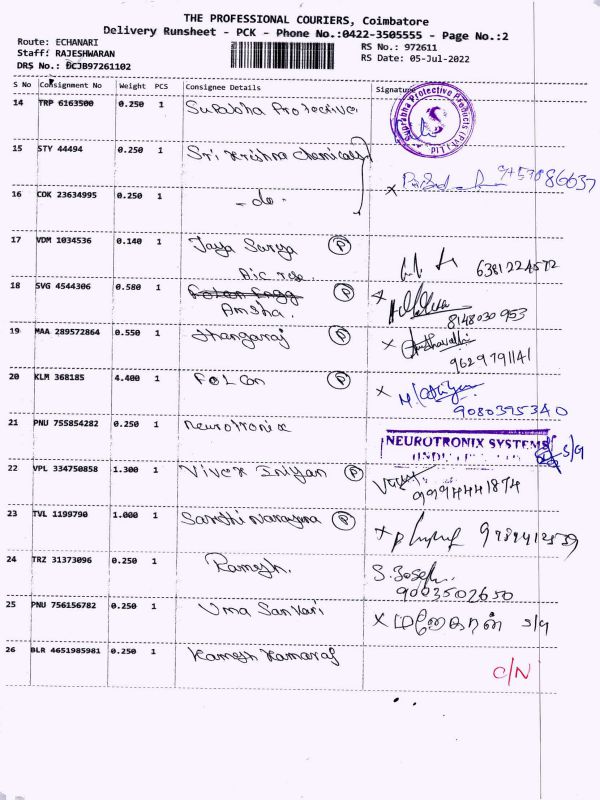 THE PROFESSIONAL COURIERS, Coimbatore
Delivery Runsheet - PCK - Phone No.:0422-3505555 - Page No.:2
Route: ECHANARI
RS No.: 972611
Staff: RAJESHWARAN
RS Date: 05-Jul-2022
DRS No.: DCJB97261102
S No Consignment No Weight PCS Consignee Details Signature
14 TRP 6163500 0.250 1 Suprabha Protective
Suprabha Protective Products (Pvt) Ltd
15 STY 44494 0.250 1 Sri Krishna chemicals
16 CDK 23634995 0.250 1 - do -
17 VDM 1034536 0.140 1 Jaya Surya P
6381224572
18 SVG 4544306 0.580 1 P
Amsha.
8148030953
19 MAA 289572864 0.550 1 Thangaraj P
9629791141
20 KLM 368185 4.400 1 Folcon P
9080375340
21 PNU 755854282 0.250 1 Neurotronix
NEUROTRONIX SYSTEMS
S/9
22 VPL 334750858 1.300 1 Vivek Iniyan P
9994441874
23 TVL 1199790 1.000 1 Santhi Narayana P
24 TRZ 31373096 0.250 1 Ramesh. S. Joseph.
9003502650
25 PNU 756156782 0.250 1 Uma Sankari X மனோகரன் S/9
26 BLR 4651985981 0.250 1 Kamesh Kamaraj
C/N